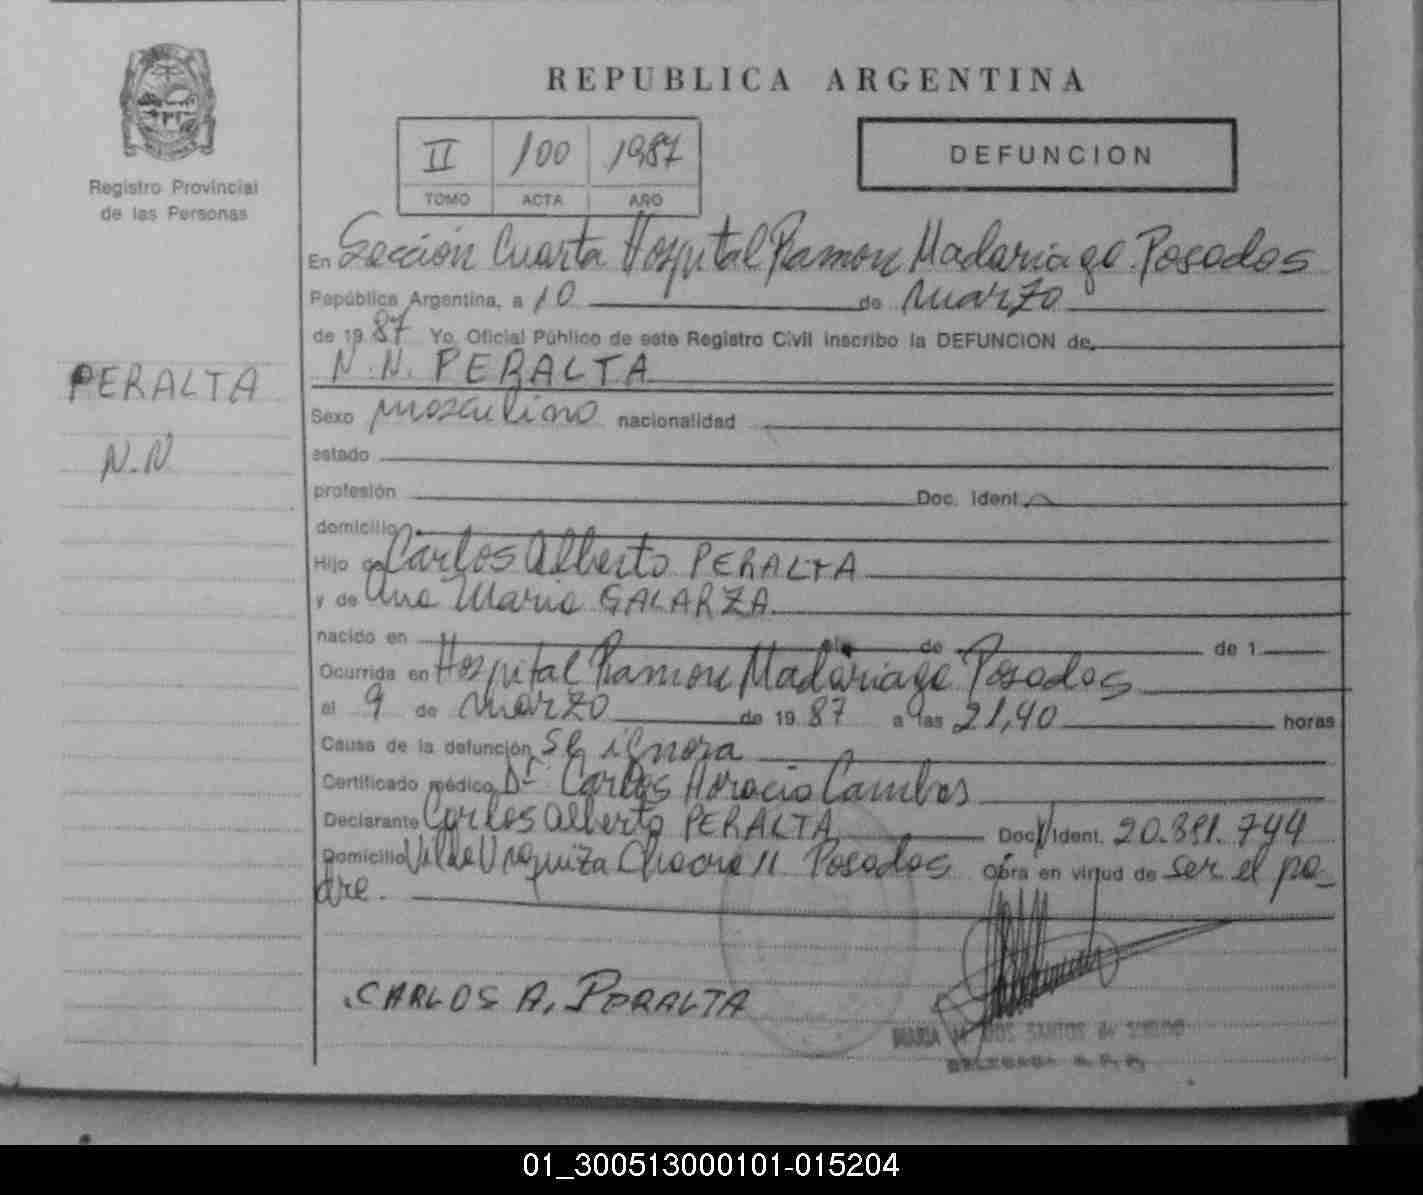 REPUBLICA ARGENTINA
II 100 1987
TOMO ACTA AÑO
DEFUNCION
Registro Provincial
de las Personas
En Sección Cuarta Hospital Ramon Madariaga Posadas
República Argentina, a 10 de marzo
de 1987 Yo, Oficial Público de este Registro Civil inscribo la DEFUNCION de
N.N. PERALTA
PERALTA
N.N
Sexo masculino nacionalidad
estado
profesión Doc. Ident.
domicilio
Hijo de Carlos Alberto PERALTA
y de Ana Maria GALARZA
nacido en el de de 1
Ocurrida en Hospital Ramon Madariaga Posadas
el 9 de marzo de 1987 a las 21,40 horas
Causa de la defunción Se ignora
Certificado médico Dr Carlos Horacio Cambas
Declarante Carlos Alberto PERALTA Doc. Ident. 20.391.744
Domicilio Urquiza Chacra 11 Posadas Obra en virtud de ser el pa-
dre.
CARLOS A. PERALTA
MARIA DOS SANTOS de
DELEGADA R.P.P.
01_300513000101-015204